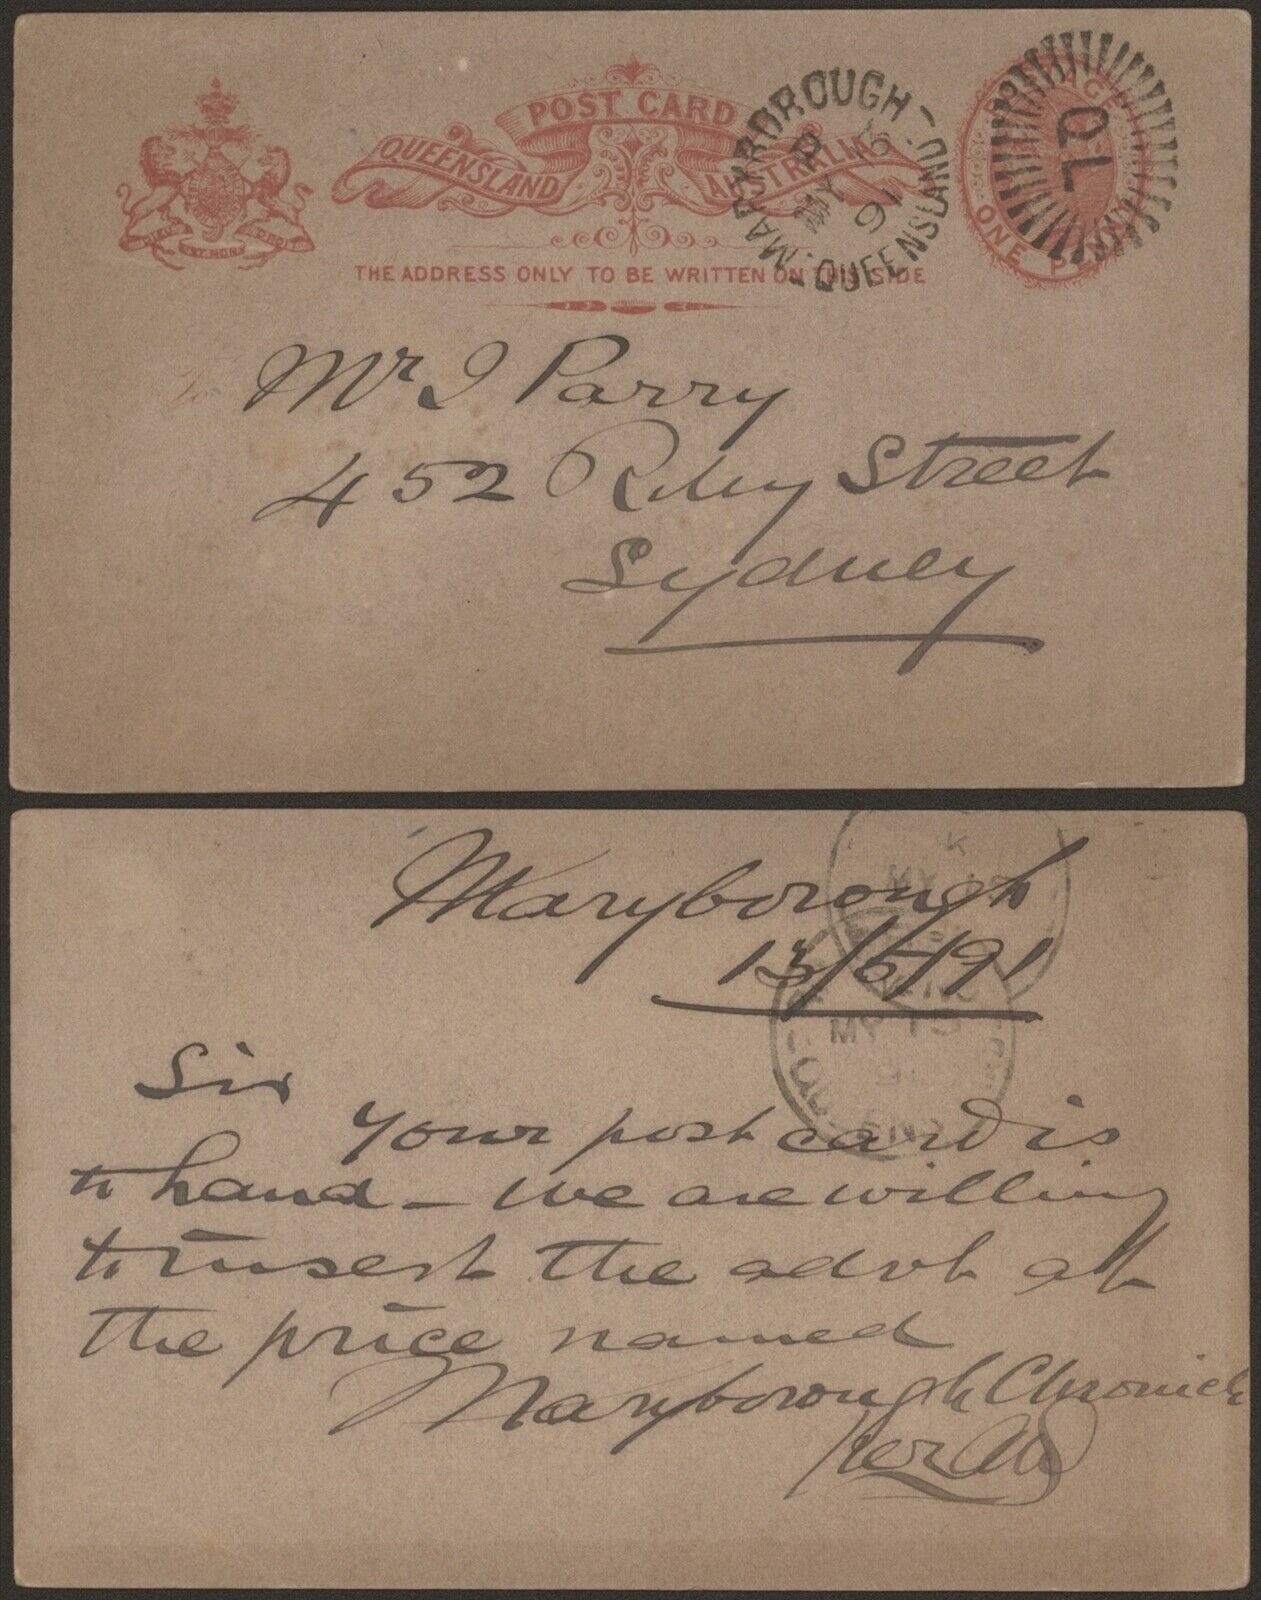 POST CARD
QUEENSLAND AUSTRALIA
DIEU ET MON DROIT
THE ADDRESS ONLY TO BE WRITTEN ON THIS SIDE
MARYBOROUGH
MY 13
91
QUEENSLAND
QL
ONE PENNY
To
Mr J Parry
452 Riley Street
Sydney
Maryborough
13/5/91
K
MY
MY 15
Sir
Your post card is
to hand – we are willing
to insert the advt at
the price named
Maryborough Chronicle
per